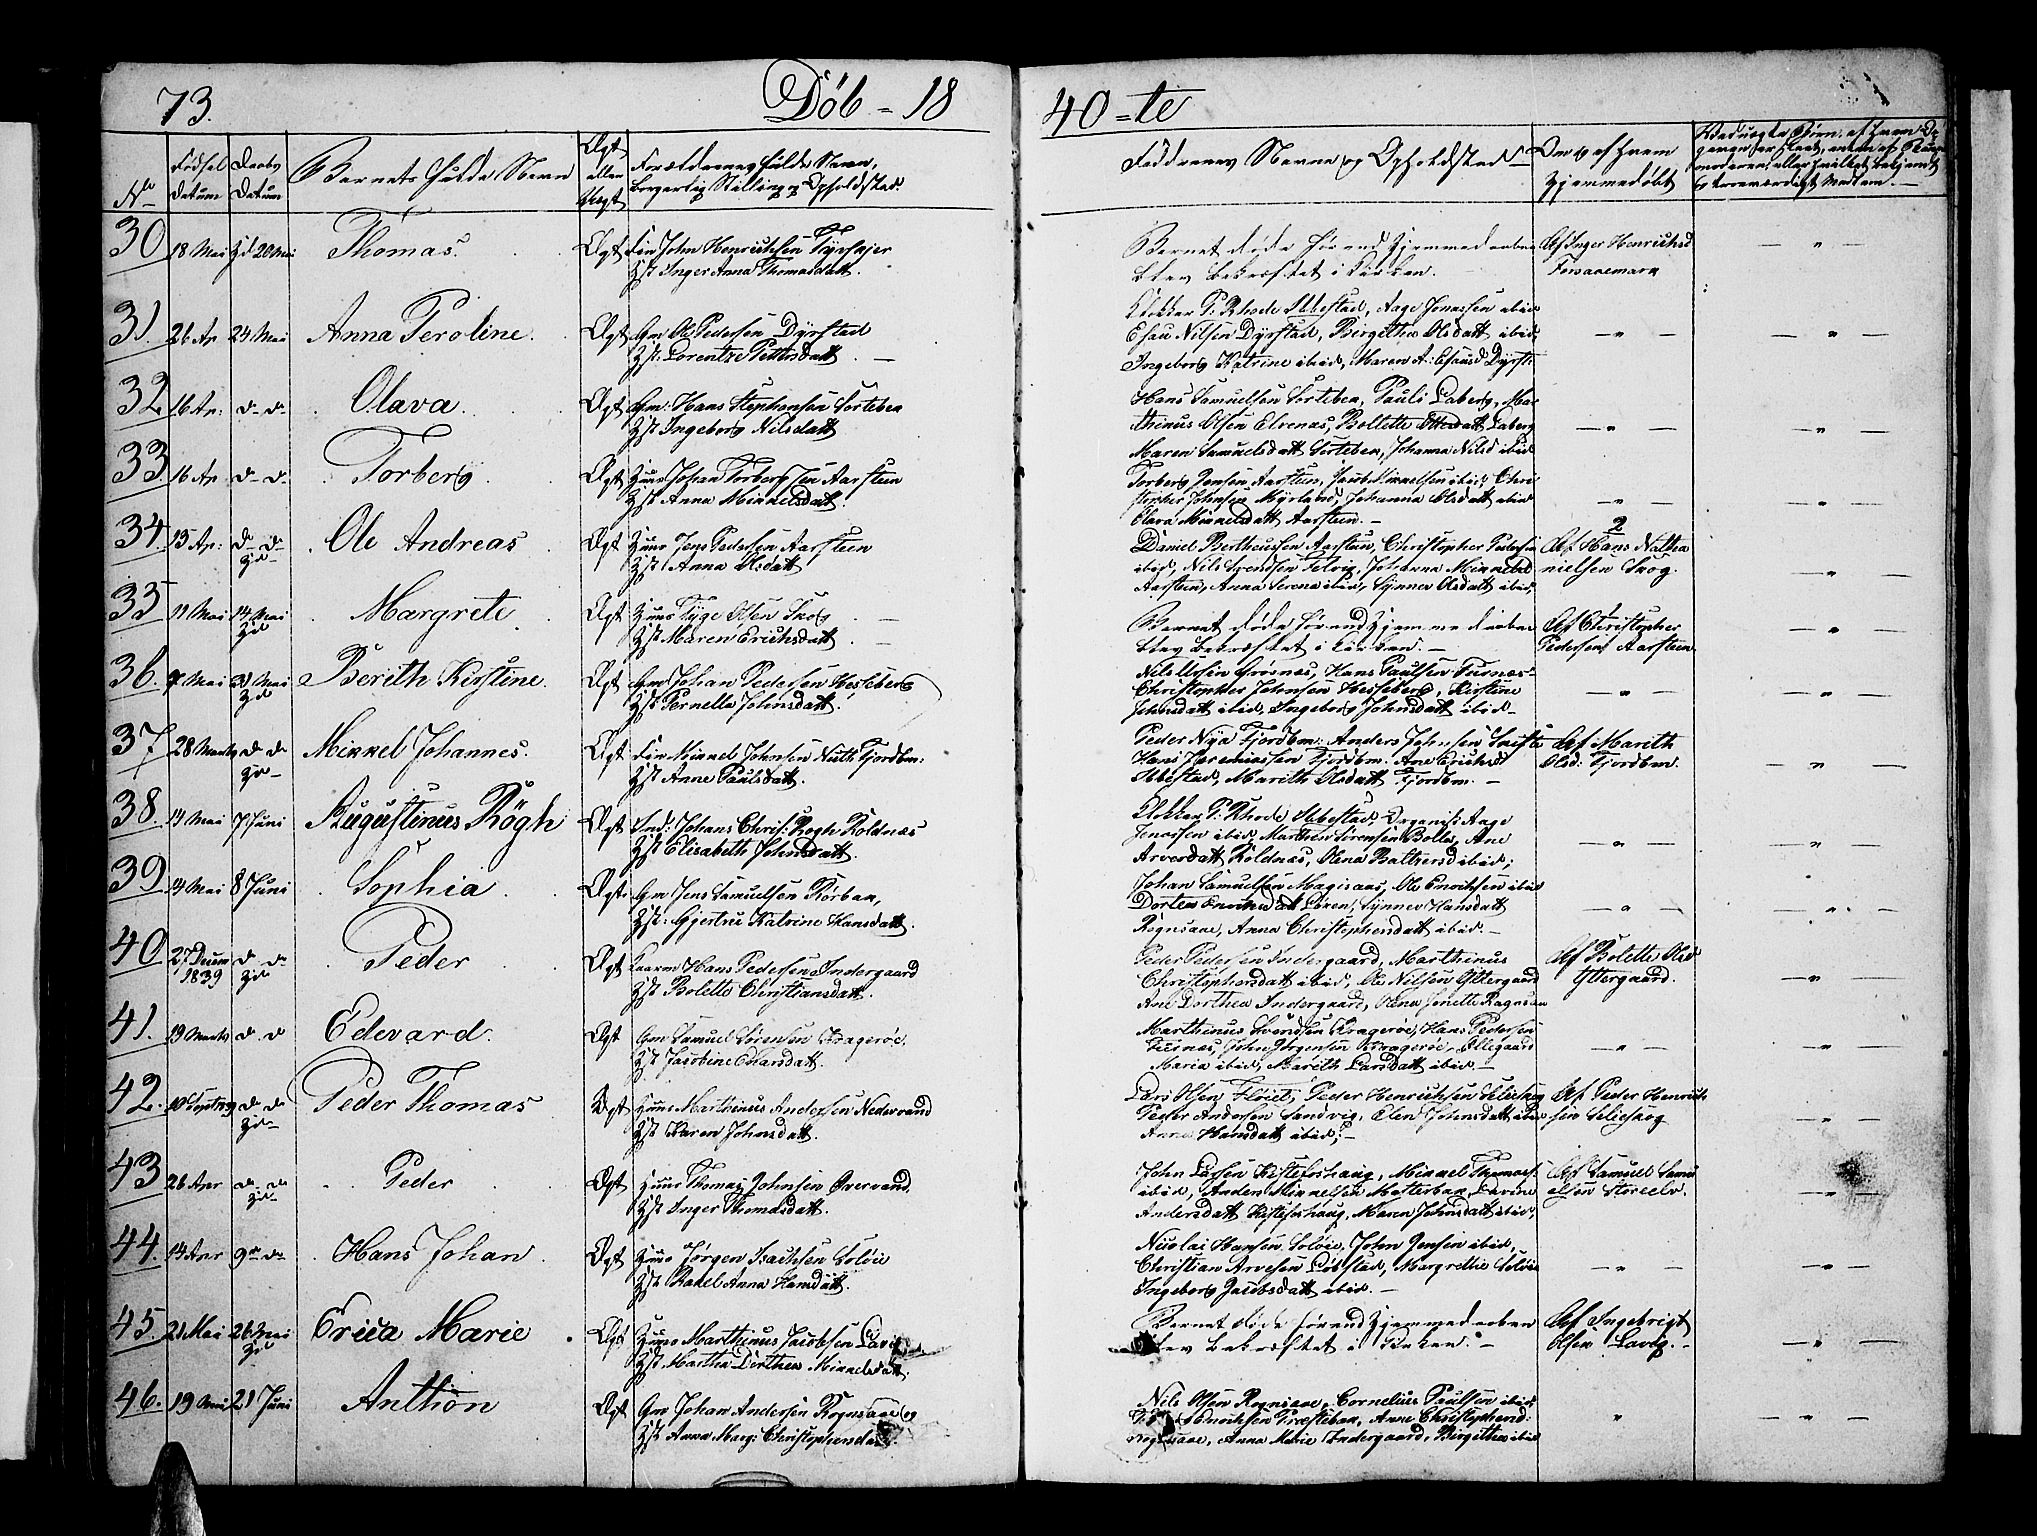 73.
Döb = 18
40=te
No
Födsel
Datum
Daabs
Datum
Barnets fulde Navn
Ægt
eller
Uægt
Forældrenes fulde Navn,
borgerlig Stilling og Opholdsted.
Faddrenes Navne og Opholdsted
Om og af hvem
hjemmedöbt
30
18 Mai
Hd 20 Mai
Thomas.
Ægt
Fin John Henrichsen
Hst Inger Anna Thomasdatt.
Barnet döde för end Hjemmedaaben
blev bekræftet i Kirken.
Af Inger Henrichsd
31.
26 Ap
24 Mai
Anna Peroline.
Ægt
Gm Ole Pedersen Dyrstad
Hst: Lorentze Pettersdatt.
Klokker P. Rhode Ibbestad, Aage Jonassen ibid
Esau Nilsen Dyrstad, Birgitha Olsdatt ibid,
Ingeborg Katrine ibid, Maren A: Esausd Dyrst:
32
16 Ap:
d- d-
Olava.
Ægt
Gm: Hans Stephansen Sorteben
Hst Ingeborg Nilsdatt
Hans Samuelsen Sorteben, Pauli Laberg, Mar
thinus Olsen Elvenes, Bollette Ottersdatt Laberg
Maren Samuelsdatt Sorteben, Johanna Nilsd ibid
33.
16 Ap
d- d-
Torberg
Ægt
Huus Johan Torbergsen Aarsteen
Hst Anna Mikkelsdatt.
Torberg Jensen Aarsteen, Jacob Mikkelsen ibid, Chri
stopher Johnsen Myrland, Johanna Olsdatt ibid
Olava Mikkelsdatt Aarsteen.
34.
13 Ap:
d- d-
Hd-
Ole Andreas
Ægt
Huus Jens Pedersen Aarsteen
Hst: Anna Olsdatt
Daniel Bertheussen Aarsteen, Christopher Pedersen
ibid, Nils Svendsen Falvig, Johanna Mikkelsd
Aarsteen, Anna Serena ibid, Synnev Olsdatt ibid,
2
Af Hans Natha
nielsen Skog.
35
11 Mai
14 Mai
Hd
Margrete
Ægt
Huus Tyge Olsen Skog
Hst Maren Erichsdatt
Barnet döde förend Hjemmedaaben
blev bekræftet i Kirken.
Af Christopher
Pedersen Aarsteen
36.
7 Mai
31 Mai
Hd
Berith Kirstine.
Ægt
Gm Johan Pedersen Hesleberg
Hst Pernella Johnsdatt.
Nils Olsen Grösnes, Hans Paulsen Furnes
Christopher Johnsen Hesleberg, Kirstine
Johnsdatt ibid, Ingeborg Johnsdatt ibid
37
28 Marts
d- d-
Hd-
Mikkel Johannes.
Ægt
Fin Mikkel Johnsen Nuth Fjordbm:
Hst Anne Paulsdatt.
Peder Nya Fjordbm: Anders Johnsen
Hans Jeremiassen Fjordbm. Ane Erichsd
Ibbestad, Marith Olsdatt Fjordbm.
Af Marith
Olsd: Fjordbm.
38.
14 Mai
7 Juni
Augustinus Rögh
Ægt
Ind: Johans Chris: Rogh Roldnæs
Hst Elisabeth Johnsdatt.
Klokker P: Rhode Ibbestad, Organist: Aage
Jonassen ibid, Marthen Sörensen Bolle, Ane
Arvesdatt Roldnæs, Olena Baltzersd ibid;
39.
14 Mai
8 Juni
Sophia
Ægt.
Gm Jens Samuelsen Rörbak,
Hst: Gjertru Katrine Hansdatt.
Johan Samuelsen Magisaas, Ole Enochsen ibid
Dortea Enochsdatt Löxen, Synnev Hansdatt
Rognsaae, Anna Christophersdatt ibid.
40
27 Decem
1839
d- d-
Hd
Peder
Ægt
Kaarm Hans Pedersen Indergaard
Hst Bolette Christiansdatt.
Peder Pedersen Indergaard, Marthinus
Christophersdatt ibid, Ole Nilsen Yttergaard
Ane Dorthea Indergaard, Olena Jonetta Rognsaae
Af Bolette Olsd
Yttergaard.
41.
19 Marts
d- d
Edevard.
Ægt
Gm Samuel Sörensen Kragerøe.
Hst Jacobine Edvarsdatt.
Marthinus Svendsen Kragerøe, Hans Pedersen
John Jörgensen Kragerøe, Ellegaard
Maria ibid, Marith Larsdatt ibid.
42.
10 Septr 39
d- d-
Hd-
Peder Thomas
Ægt
Huus Marthinus Andersen Nedervand
Hst Karen Johnsdatt.
Lars Olsen Floiet, Peder Henrichsen Seljeskog
Peder Andersen Sandvig, Elen Johnsdatt ibid
Anna Hansdatt ibid;
Af Peder Henrich
sen Seljeskog
43
26 Apr
d- d-
Hd-
Peder
Ægt
Huus Thomas Johnsen Overvand
Hst Inger Thomasdatt.
John Larsen Kistefoshaug, Mikkel Thomass
ibid, Anders Mikkelsen
Andersdatt Kistefoshaug, Maren Johnsdatt ibid,
Af Samuel Samu
elsen Storeelv.
44.
14 Apr
9de d-
Hans Johan
Ægt
Huus Jørgen Isachsen Soløie
Hst Rakel Anna Hansdatt.
Nicolai Hansen Soløie, John Jensen ibid,
Christian Arvesen Löbstad, Margrethe Soløie
Ingeborg Jacobsdatt ibid.
45.
21 Mai
26 Mai
Hd
Erica Marie
Ægt
Huus Marthinus Jacobsen Lavig
Hst Martha Dorthea Mikkelsdatt.
Barnet döde förend Hjemmedaaben
blev bekræftet i Kirken.
Af Ingebrigt
Olsen Lavig.
46.
19 Mai
21 Juni
Anthon
Ægt
Gm Johan Andersen Rognsaae og
Hst Anna Marg: Christophersdatt.
Nils Olsen Rognsaae, Cornelius Paulsen ibid,
Enochsen Træsteben, Anne Christophersd:
Rognsaae, Anna Marie Indergaard, Birgitha ibid